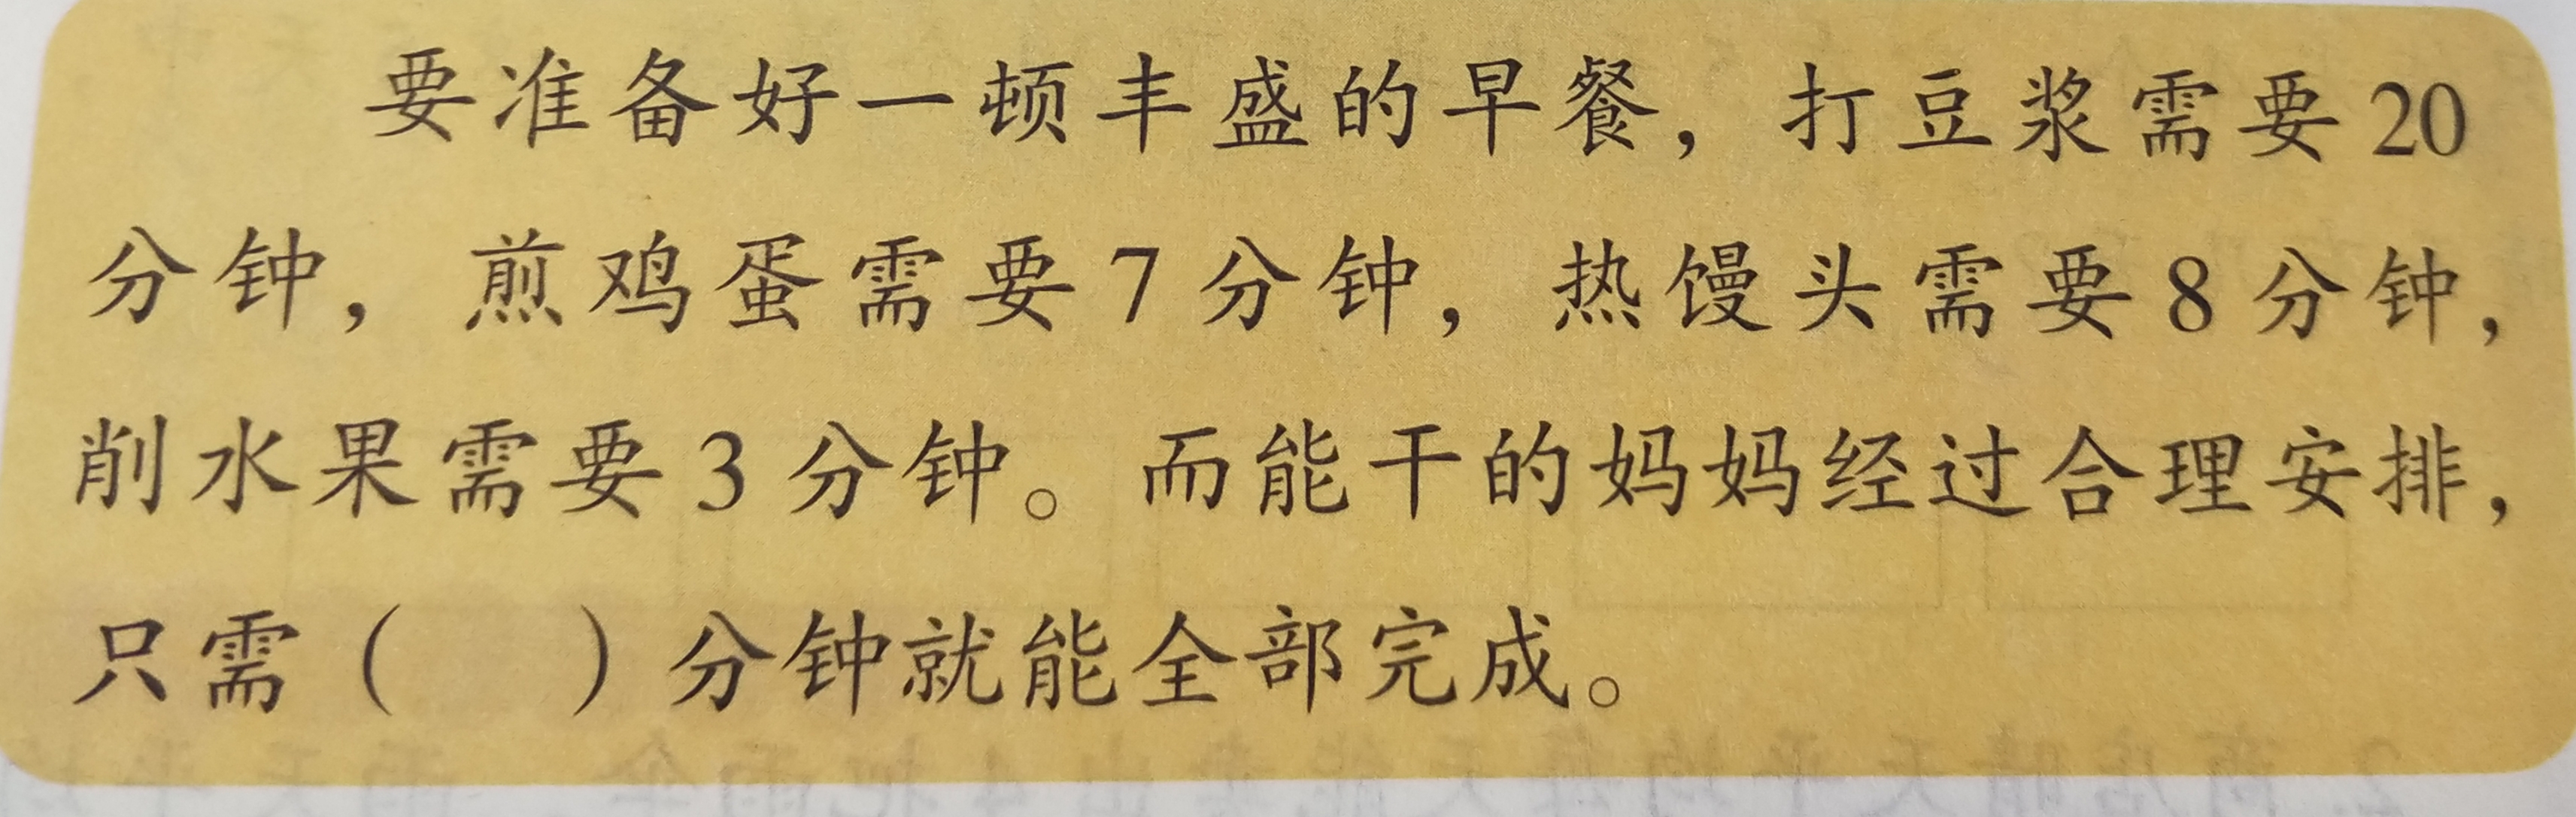 要准备好一顿丰盛的早餐，打豆浆需要20
分钟，煎鸡蛋需要7分钟，热馒头需要8分钟，
削水果需要3分钟。而能干的妈妈经过合理安排，
只需（ ）分钟就能全部完成。